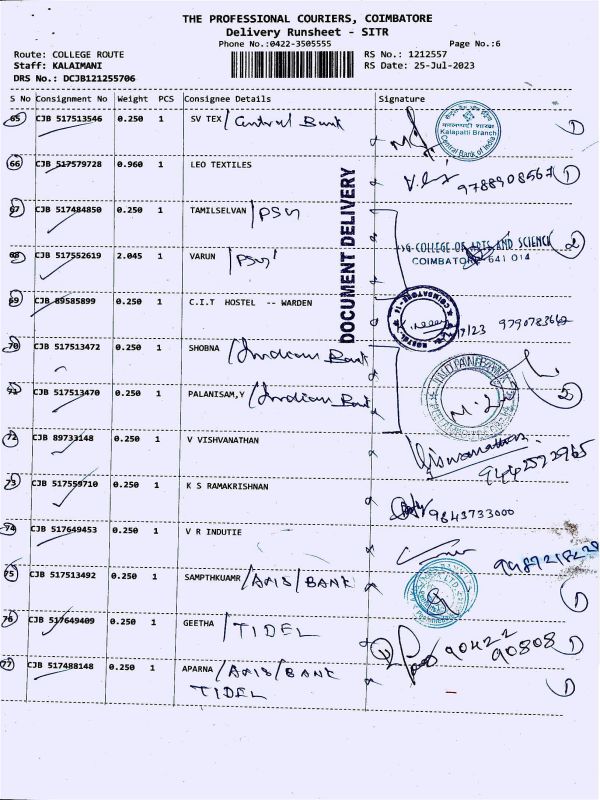 THE PROFESSIONAL COURIERS, COIMBATORE
Delivery Runsheet - SITR
Phone No.:0422-3505555
Page No.:6
Route: COLLEGE ROUTE
RS No.: 1212557
Staff: KALAIMANI
RS Date: 25-Jul-2023
DRS No.: DCJB121255706
S No Consignment No Weight PCS Consignee Details Signature
65 CJB 517513546 0.250 1 SV TEX / Central Bank
Kalapatti Branch
Central Bank of India
66 CJB 517579728 0.960 1 LEO TEXTILES 9788908567 1
DOCUMENT DELIVERY
67 CJB 517484850 0.250 1 TAMILSELVAN / PSG
68 CJB 517552619 2.045 1 VARUN / PSG 2
PSG COLLEGE OF ARTS AND SCIENCE
COIMBATORE - 641 014
69 CJB 89585899 0.250 1 C.I.T HOSTEL -- WARDEN
70 CJB 517513472 0.250 1 SHOBNA / Indian Bank
71 CJB 517513470 0.250 1 PALANISAM,Y / Indian Bank
INDIAN BANK
72 CJB 89733148 0.250 1 V VISHVANATHAN Viswanathan
73 CJB 517559710 0.250 1 K S RAMAKRISHNAN 9843733000
74 CJB 517649453 0.250 1 V R INDUTIE
75 CJB 517513492 0.250 1 SAMPTHKUAMR / AXIS / BANK 1
76 CJB 517649409 0.250 1 GEETHA / TIDEL 90422 90808 1
77 CJB 517488148 0.250 1 APARNA / AXIS / BANK 1
TIDEL